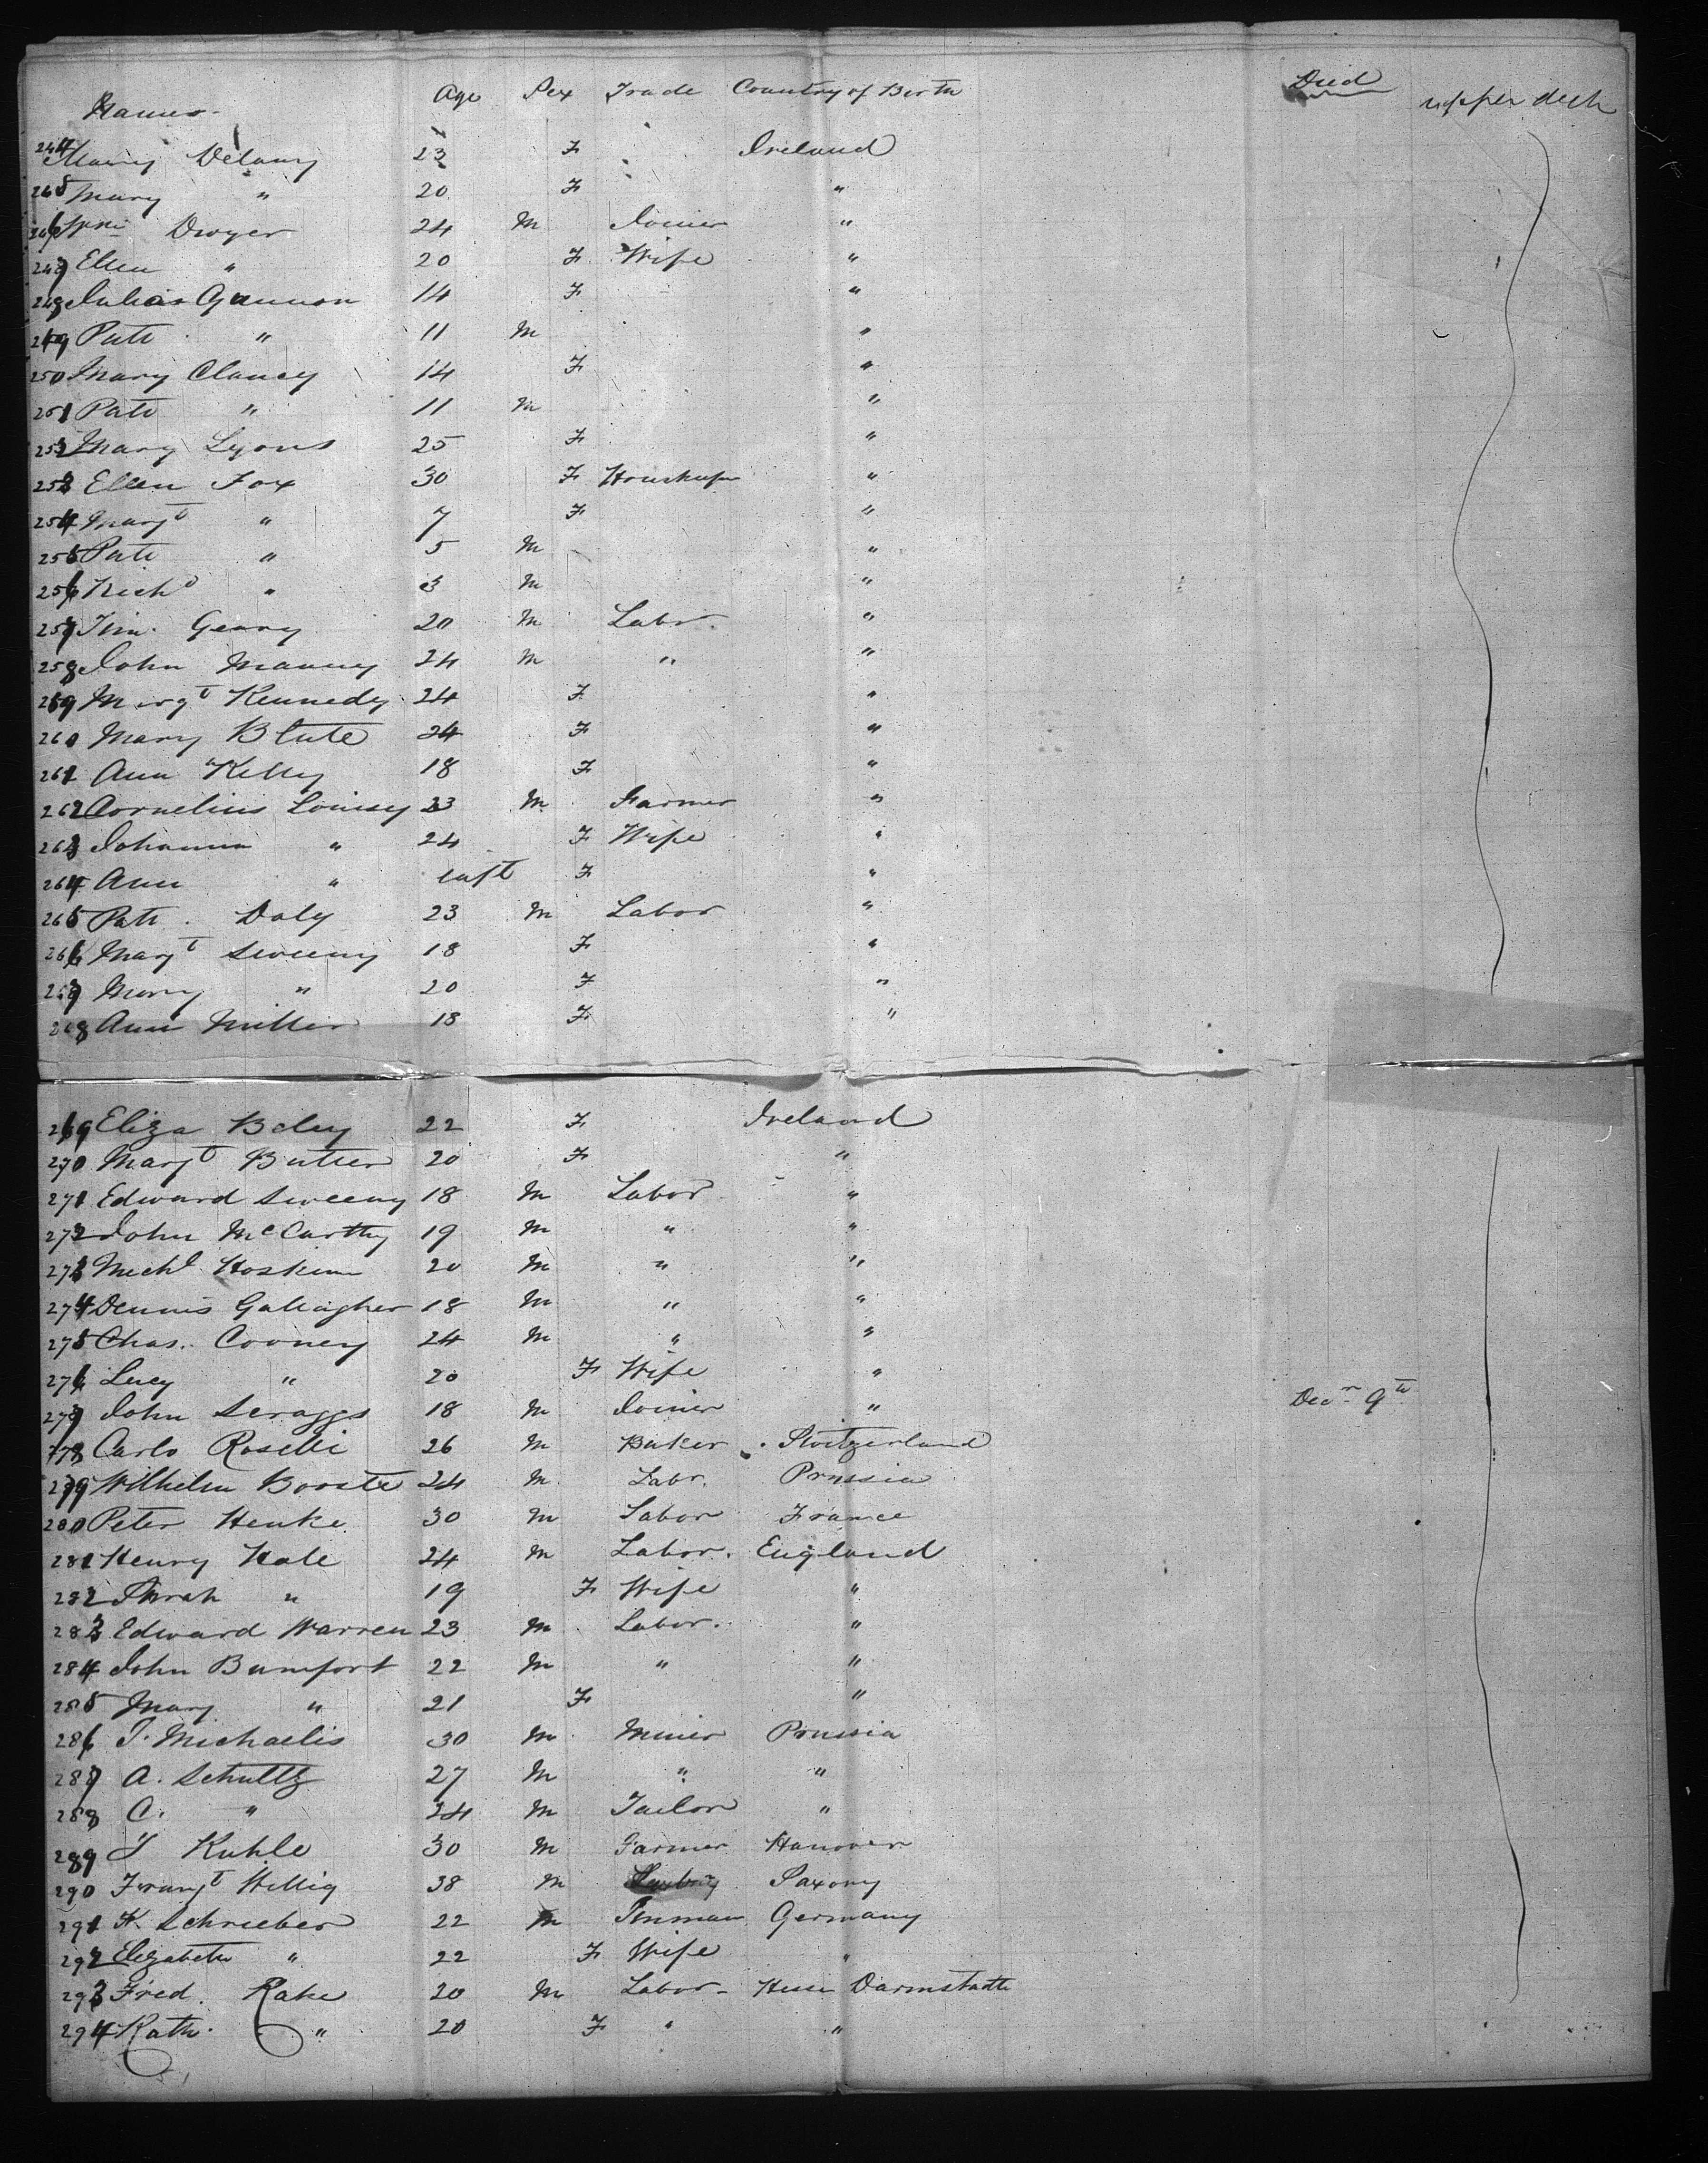 Names Age Sex Trade Country of Birth Died upper deck
244 Mary Delany 23 F Ireland
245 Mary " 20 F "
246 Dwyer 24 M Joiner "
247 Ellen " 20 F Wife "
248 Julia Gannon 14 F "
249 Patk " 11 M "
250 Mary Clancy 14 F "
251 Patk " 11 M "
252 Mary Lyons 25 F "
253 Ellen Fox 30 F Housekeeper "
254 Margt " 7 F "
255 Patk " 5 M "
256 Richd " 3 M "
257 Tim. Geary 20 M Labr. "
258 John Manny 24 M " "
259 Margt Kennedy 24 F "
260 Mary Blute 24 F "
261 Ann Kelly 18 F "
262 Cornelius 23 M Farmer "
263 Johanna " 24 F Wife "
264 Ann " Inft F "
265 Patk. Daly 23 M Labor "
266 Margt Sweeny 18 F "
267 Mary " 20 F "
268 Ann Miller 18 F "
269 Eliza 22 F Ireland
270 Margt Butler 20 F "
271 Edward Sweeny 18 M Labor "
272 John McCarthy 19 M " "
273 Michl Hoskins 20 M " "
274 Dennis Gallagher 18 M " "
275 Chas. Cooney 24 M " "
276 Lucy " 20 F Wife "
277 John Scraggs 18 M Joiner " Decr 9th
278 Carlo Roselli 26 M Baker Switzerland
279 Wilhelm Booste 24 M Labr. Prussia
280 Peter Henke 30 M Labor France
281 Henry Hale 24 M Labor. England
282 Sarah " 19 F Wife "
283 Edward Warren 23 M Labor. "
284 John Bumfort 22 M " "
285 Mary " 21 F "
286 J. Michaelis 30 M Miner Prussia
287 A. Schultz 27 M " "
288 C. " 24 M Tailor "
289 J Kuhle 30 M Farmer Hanover
290 Hillig 38 M Saxony
291 K. Schrieber 22 M Tinman Germany
292 Elizabeth " 22 F Wife "
293 Fred. Rake 20 M Labor- Hesse Darmstadt
294 Kath. " 20 F " "